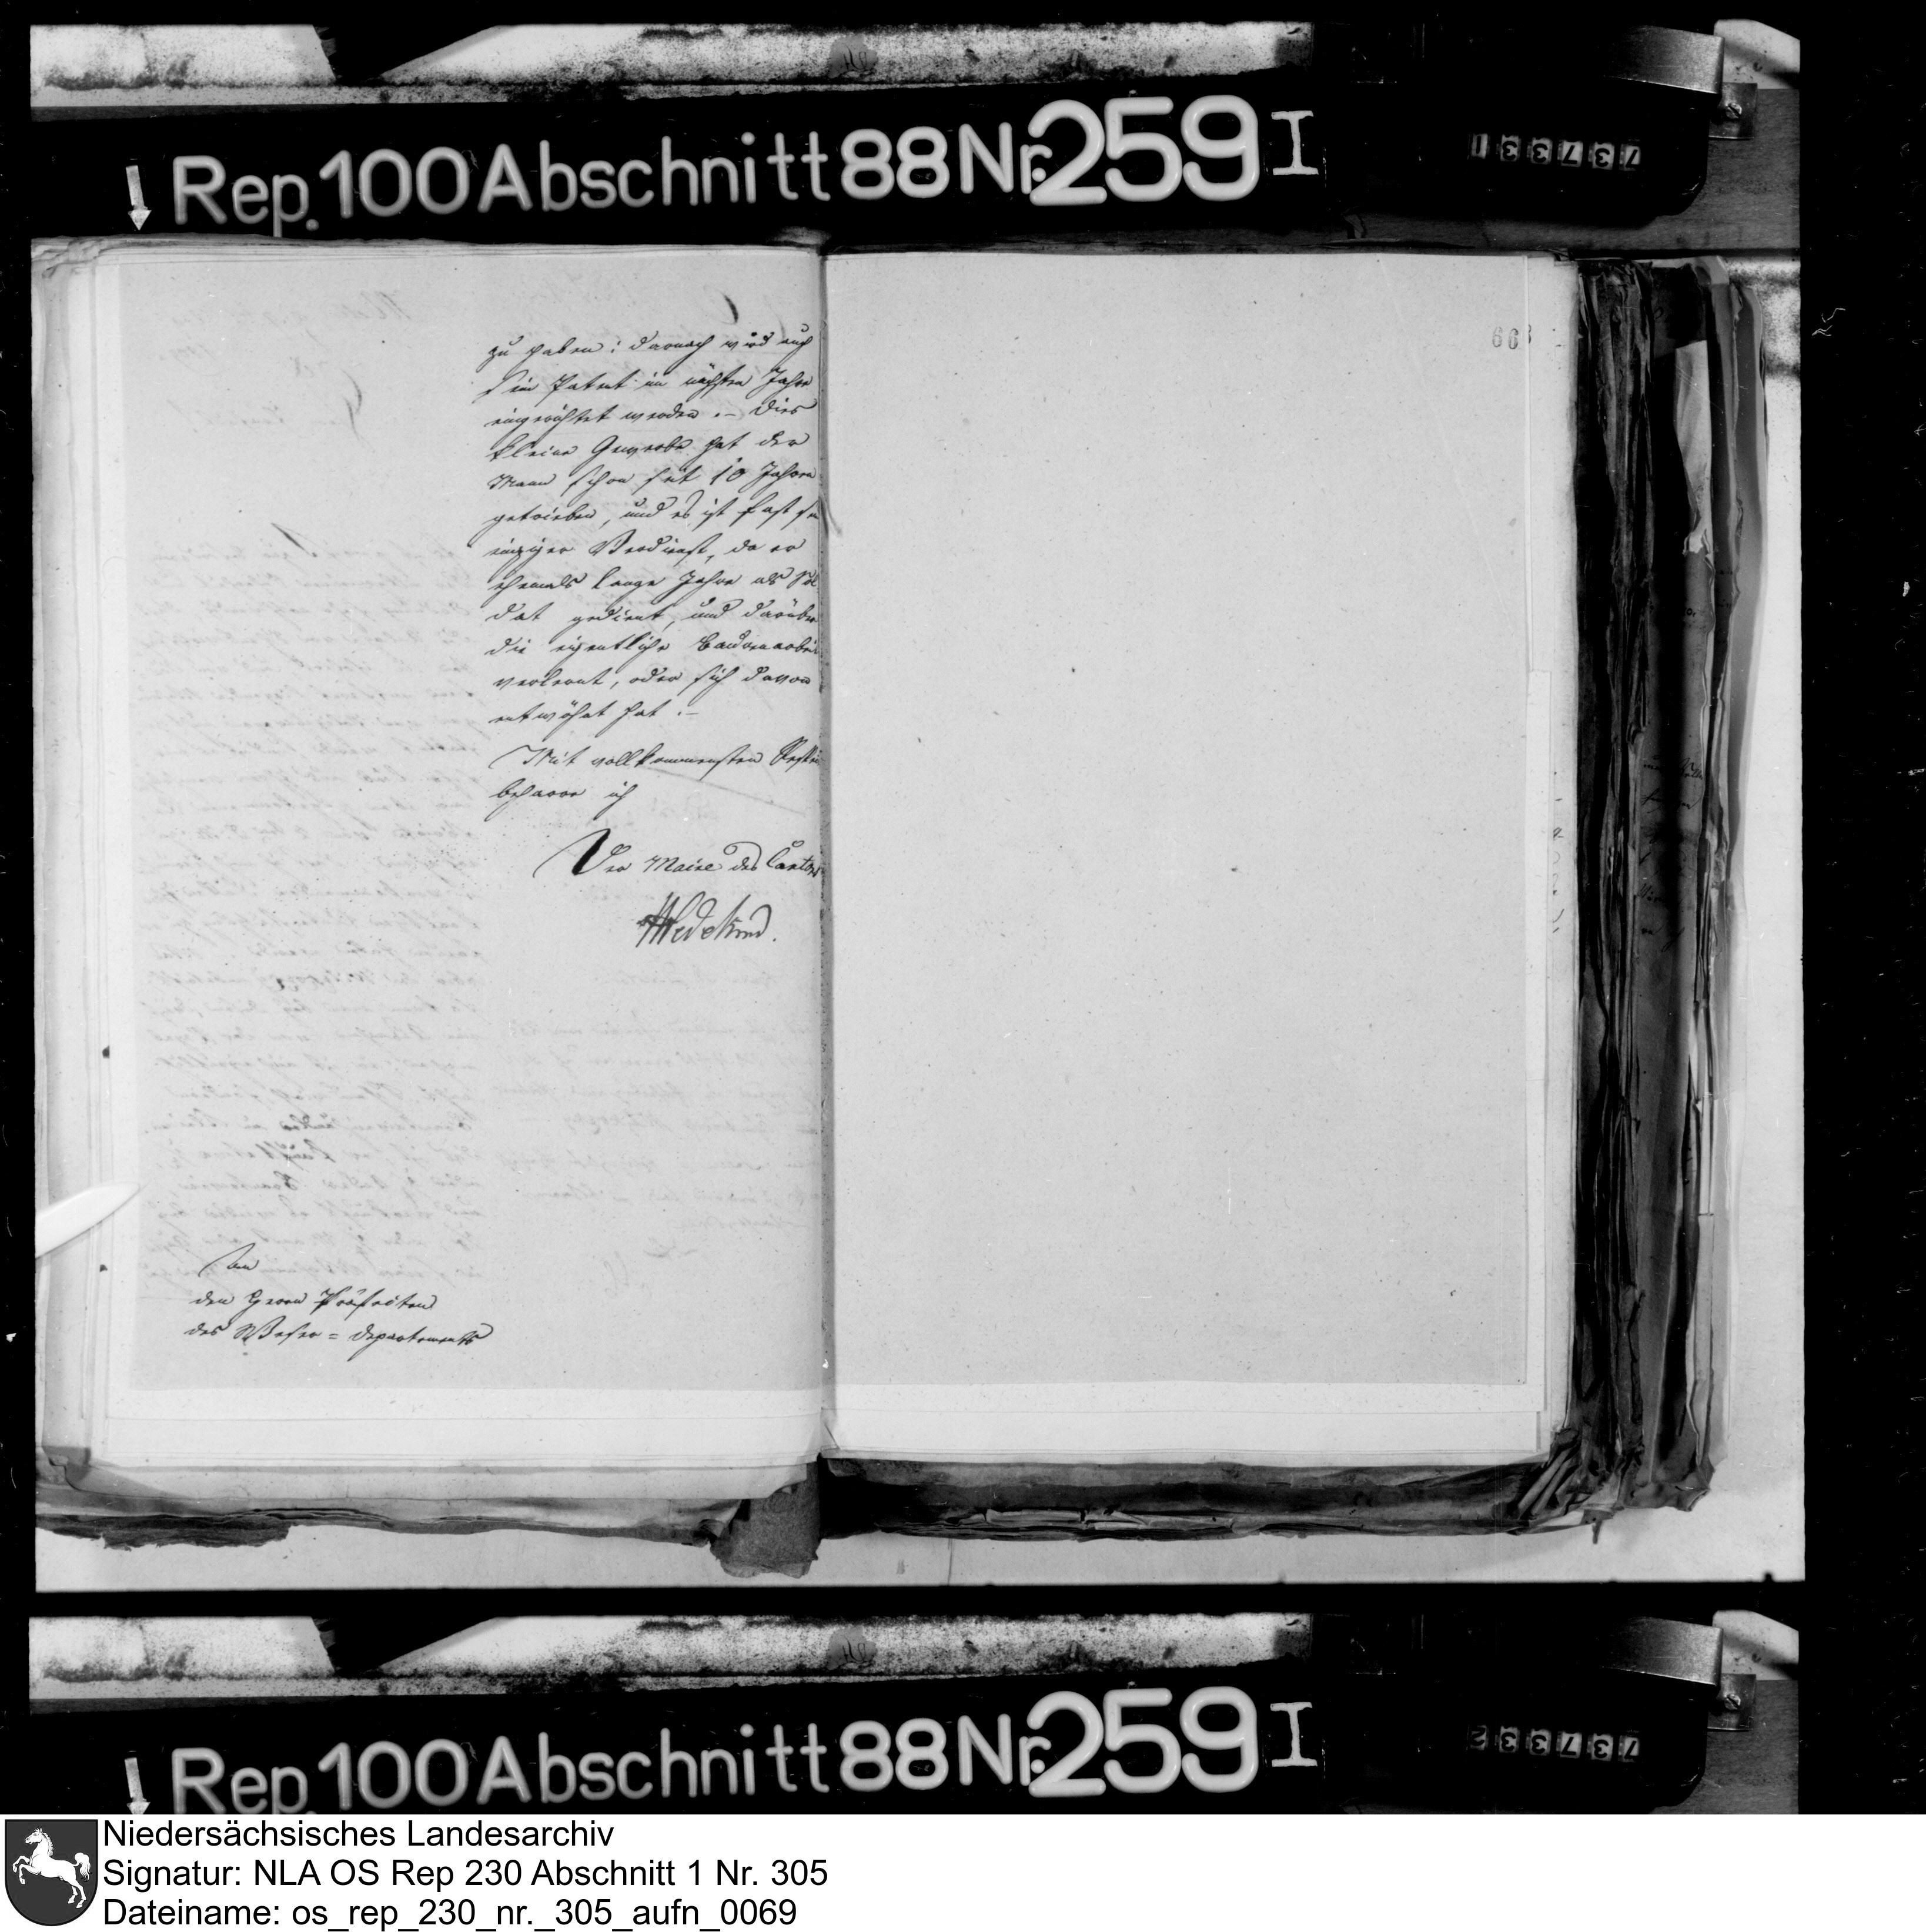 Rep. 100 Abschnitt 88 Nr. 259 I
737331
668
zu haben; darnach wird auch
sein Patent im nächsten Jahre
eingerichtet werden. – Dies
kleine Gewerbe hat der
Mann schon seit 10 Jahren
getrieben, und es ist fast sein
einziger Verdienst, da er
ehemals lange Jahre als Sol
dat gedient, und darüber
die eigentliche
verlernt, oder sich davon
entwöhnt hat. –
Mit vollkommensten
beharre ich
Der Maire des Cantons
Wedekind.
An
den Herrn Präfecten
des Weser = Departements
Rep. 100 Abschnitt 88 Nr. 259 I
737332
Niedersächsisches Landesarchiv
Signatur: NLA OS Rep 230 Abschnitt 1 Nr. 305
Dateiname: os_rep_230_nr._305_aufn_0069